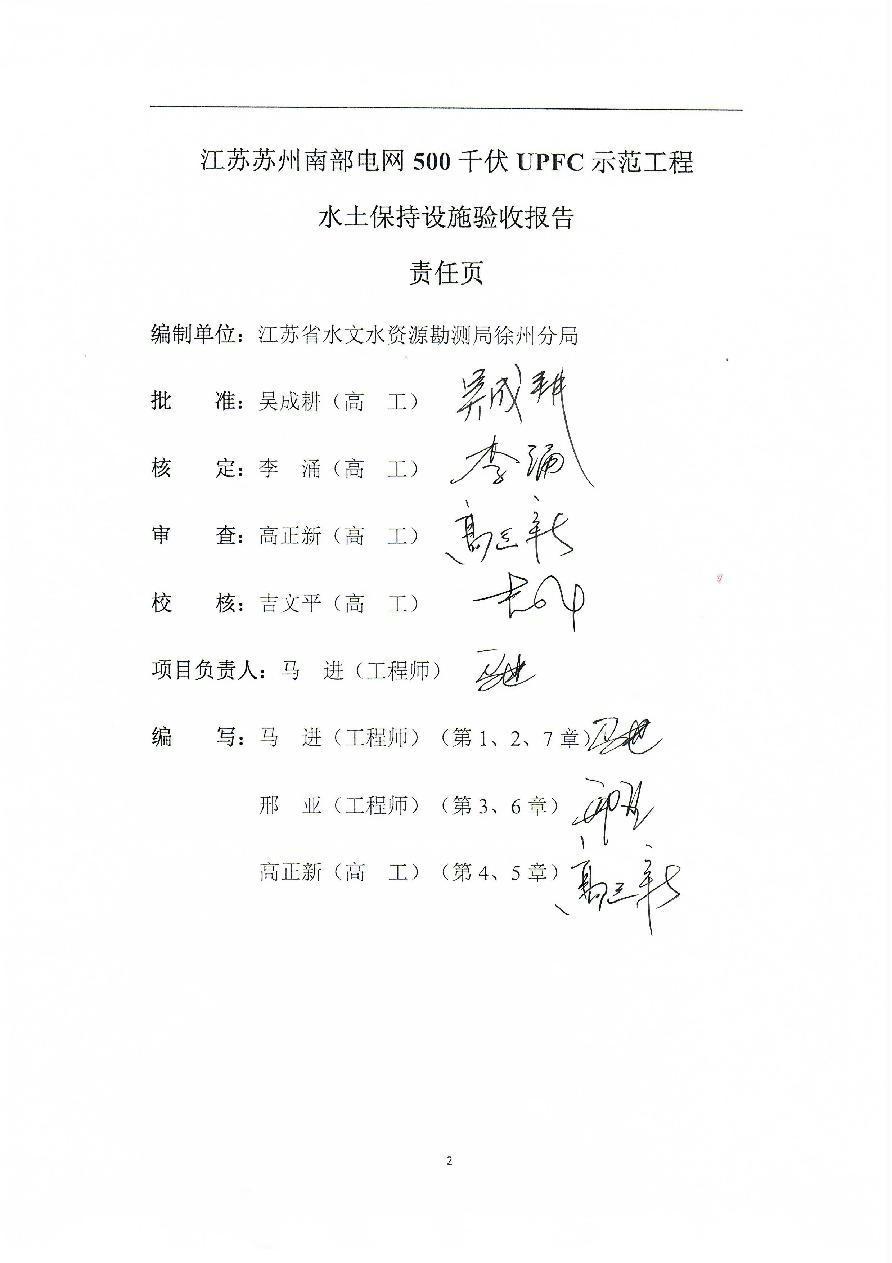 江苏苏州南部电网 500 千伏 UPFC 示范工程
水土保持设施验收报告
责任页
编制单位：江苏省水文水资源勘测局徐州分局
批　　准：吴成耕（高　工） 吴成耕
核　　定：李　涌（高　工） 李涌
审　　查：高正新（高　工） 高正新
校　　核：吉文平（高　工）
项目负责人：马　进（工程师） 马进
编　　写：马　进（工程师）（第 1、2、7 章） 马进
邢　亚（工程师）（第 3、6 章）
高正新（高　工）（第 4、5 章） 高正新
2